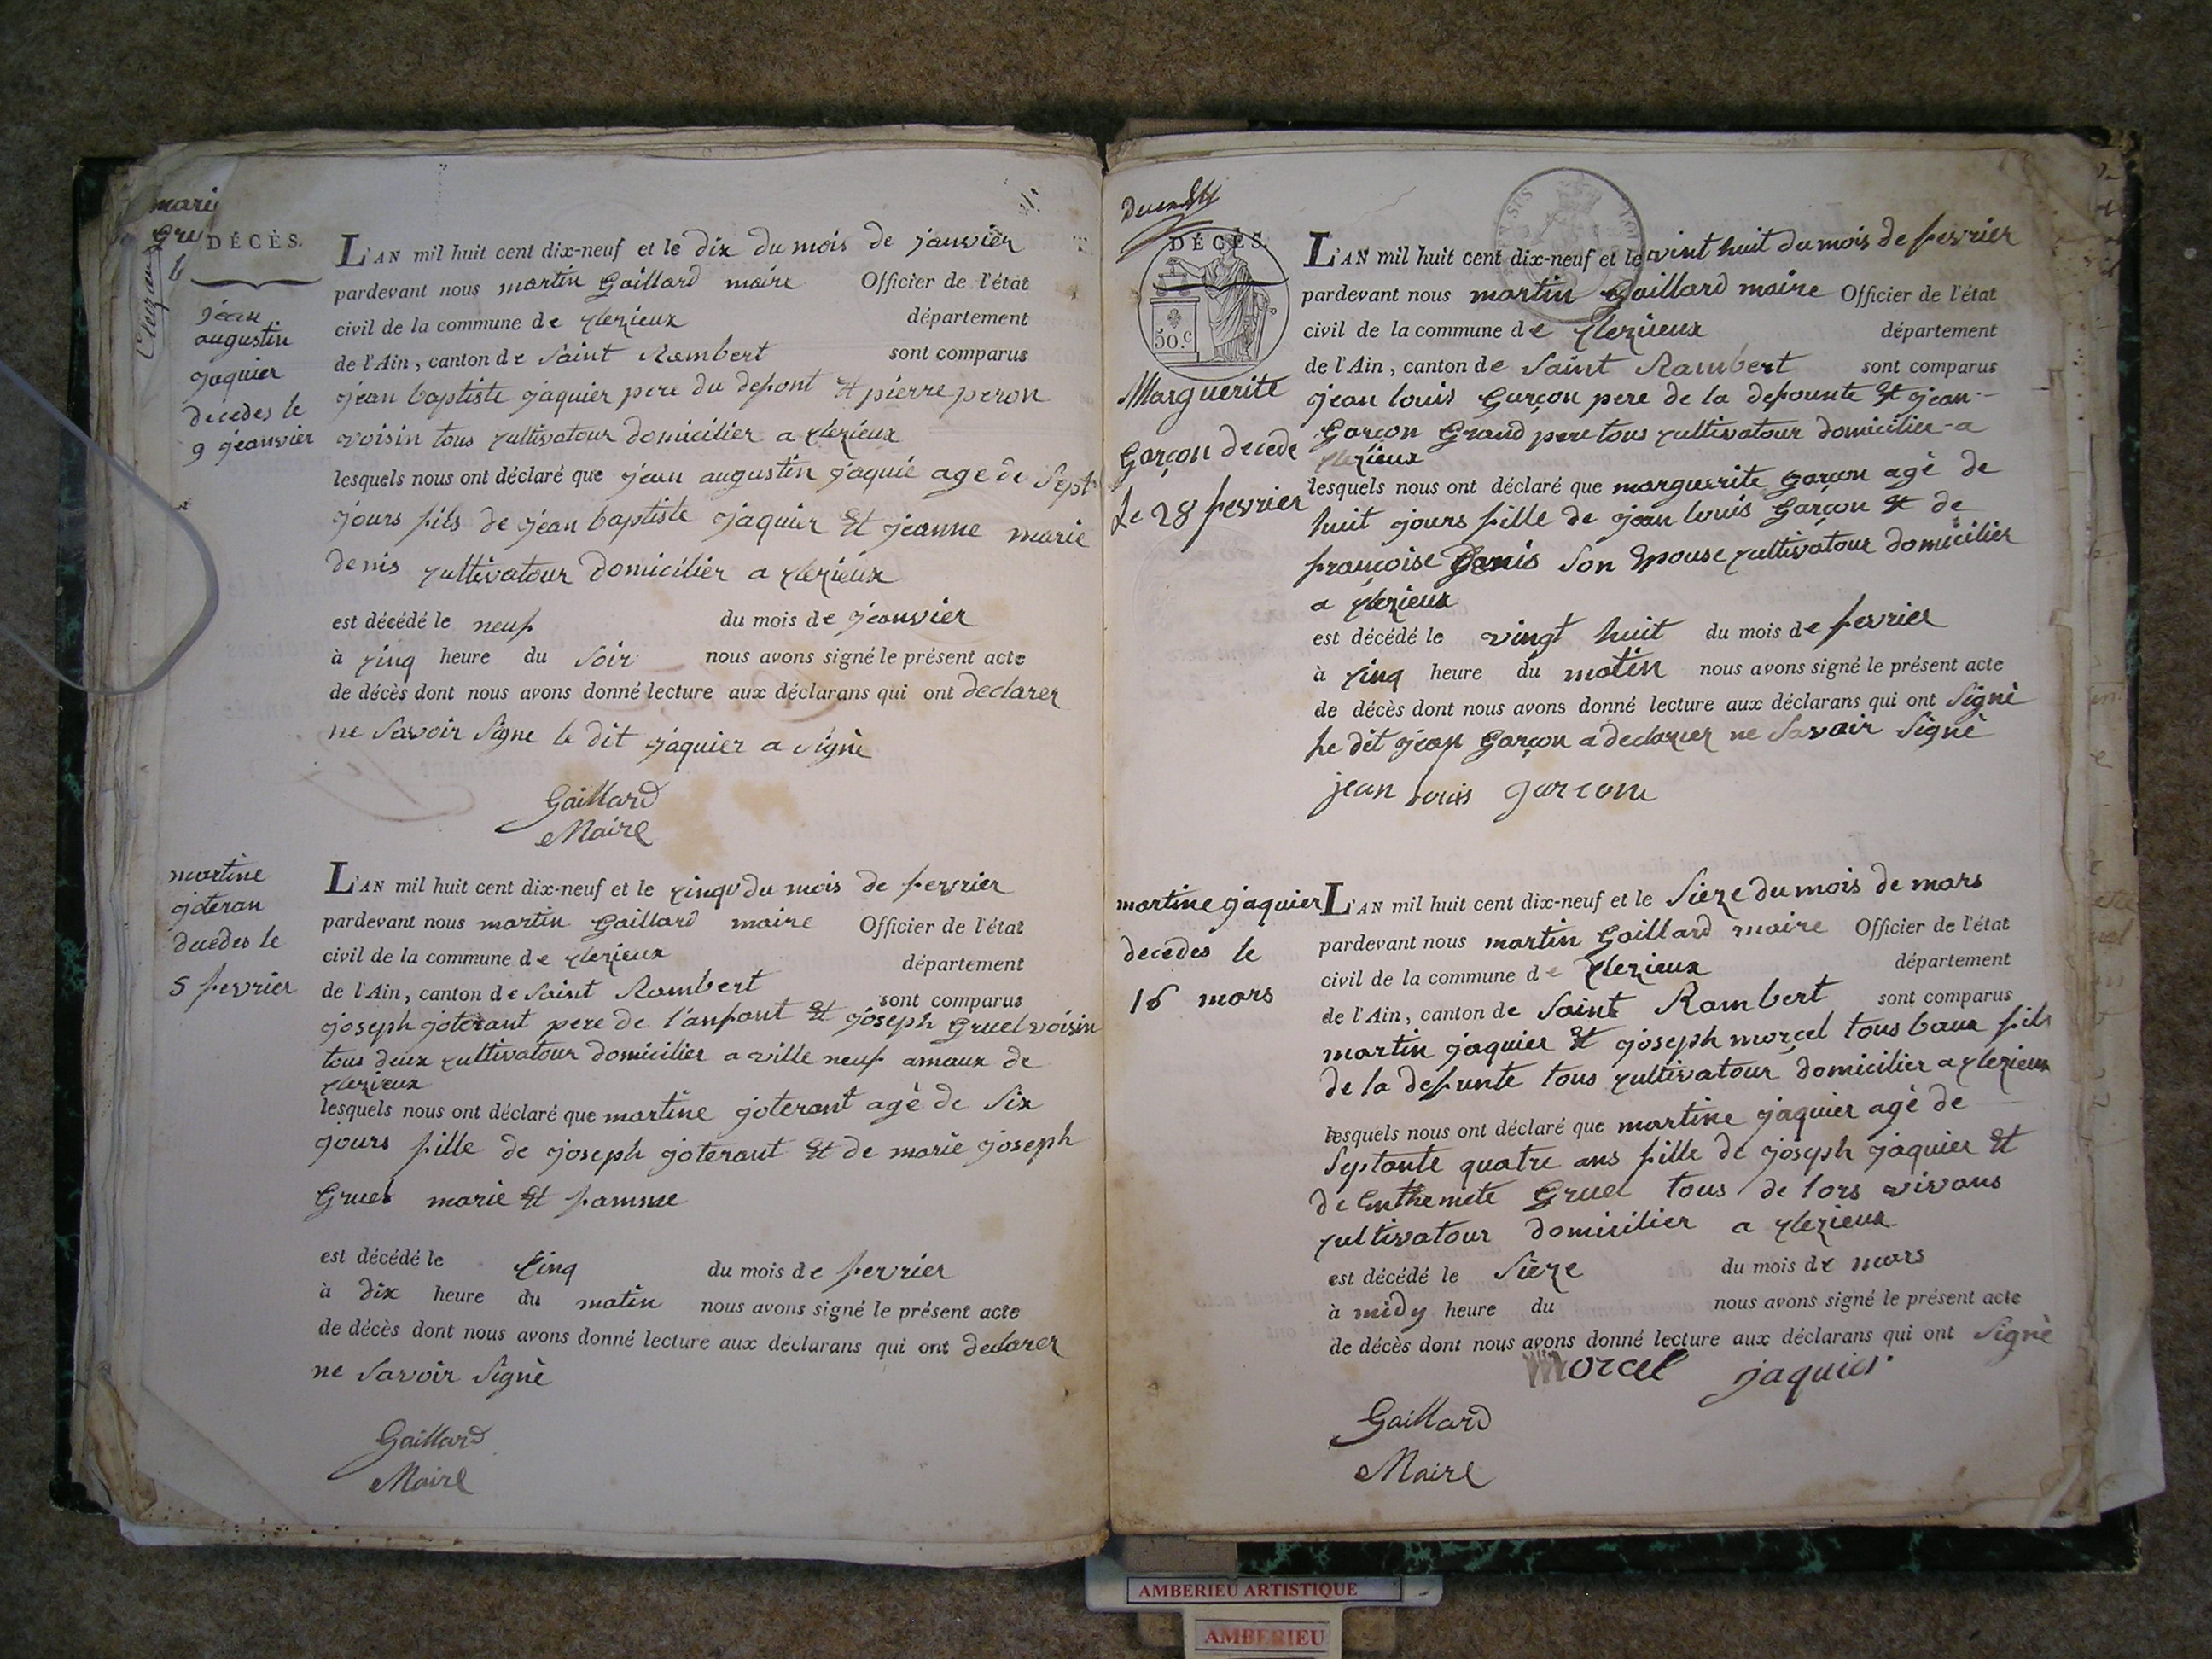 mari
gru
DÉCÈS.
jéan
augustin
jaquier
decedes le
9 jeanvier
L'AN mil huit cent dix-neuf et le dix du mois de janvier
pardevant nous martin Gaillard maire Officier de l'état
civil de la commune de clezieux département
de l'Ain, canton de Saint Rambert sont comparus
jean baptiste jaquier pere du defont et pierre peron
voisin tous cultivatour domicilier a clezieux
lesquels nous ont déclaré que jean augustin jaquié age de Sept
jours fils de jean baptiste jaquier et jeanne marie
denis cultivatour domicilier a clezieux
est décédé le neuf du mois de jeanvier
à cinq heure du Soir nous avons signé le présent acte
de décès dont nous avons donné lecture aux déclarans qui ont declarer
ne Savoir Signe le dit jaquier a Signè
Gaillard
Maire
martine
joteran
decedes le
5 fevrier
L'AN mil huit cent dix-neuf et le cinq du mois de fevrier
pardevant nous martin Gaillard maire Officier de l'état
civil de la commune de clezieux département
de l'Ain, canton de Saint Rambert sont comparus
joseph joterant pere de l'anfant et joseph Gruel voisin
tous deux cultivatour domicilier a ville neuf amaux de
clezieux
lesquels nous ont déclaré que martine joterant agè de Six
jours fille de joseph joterant et de marie joseph
Gruel marie et famme
est décédé le cinq du mois de fevrier
à dix heure du matin nous avons signé le présent acte
de décès dont nous avons donné lecture aux déclarans qui ont declarer
ne Savoir Signè
Gaillard
Maire
DÉCÈS.
50.c
Marguerite
Garçon decede
Le 28 fevrier
L'AN mil huit cent dix-neuf et le vint huit du mois de fevrier
pardevant nous martin Gaillard maire Officier de l'état
civil de la commune de clezieux département
de l'Ain, canton de Saint Rambert sont comparus
jean louis Garçon pere de la defounte et jean
Garçon Grand pere tous cultivatour domicilier a
clezieux
lesquels nous ont déclaré que marguerite Garçon agè de
huit jours fille de jean louis Garçon et de
françoise Denis Son Epouse cultivatour domicilier
a clezieux
est décédé le vingt huit du mois de fevrier
à cinq heure du matin nous avons signé le présent acte
de décès dont nous avons donné lecture aux déclarans qui ont Signè
Le dit jean Garçon a declarer ne Savoir Signè
jean louis garcom
martine jaquier
decedes le
16 mars
L'AN mil huit cent dix-neuf et le Sieze du mois de mars
pardevant nous martin Gaillard maire Officier de l'état
civil de la commune de clezieux département
de l'Ain, canton de Saint Rambert sont comparus
martin jaquier et joseph morçel tous baux fils
de la defunte tous cultivatour domicilier a clezieux
lesquels nous ont déclaré que martine jaquier agè de
Septante quatre ans fille de joseph jaquier et
de Enthemete Gruel tous de lors vivans
cultivatour domicilier a clezieux
est décédé le Sieze du mois de mars
à midy heure du nous avons signé le présent acte
de décès dont nous avons donné lecture aux déclarans qui ont Signè
Morcel jaquier
Gaillard
Maire
AMBERIEU ARTISTIQUE
AMBERIEU